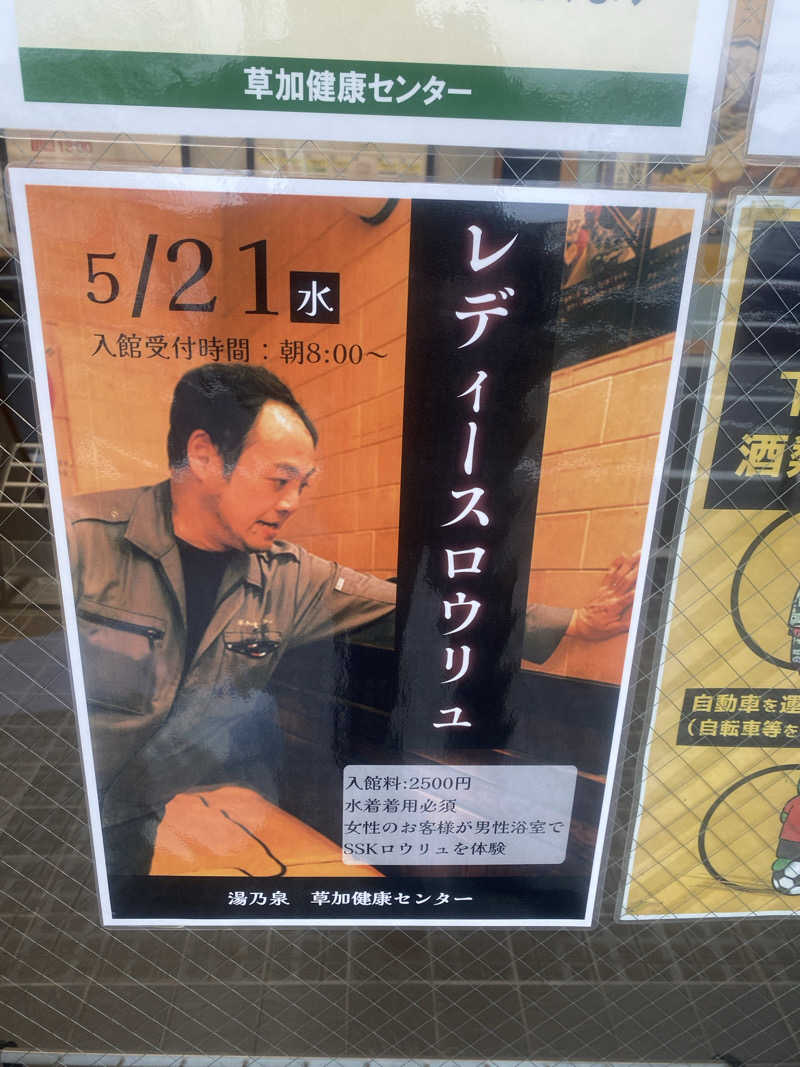 草加健康センター
5/21水
入館受付時間：朝8:00～
レディースロウリュ
入館料:2500円
水着着用必須
女性のお客様が男性浴室で
SSKロウリュを体験
湯乃泉 草加健康センター
酒類
自動車を運
(自転車等を